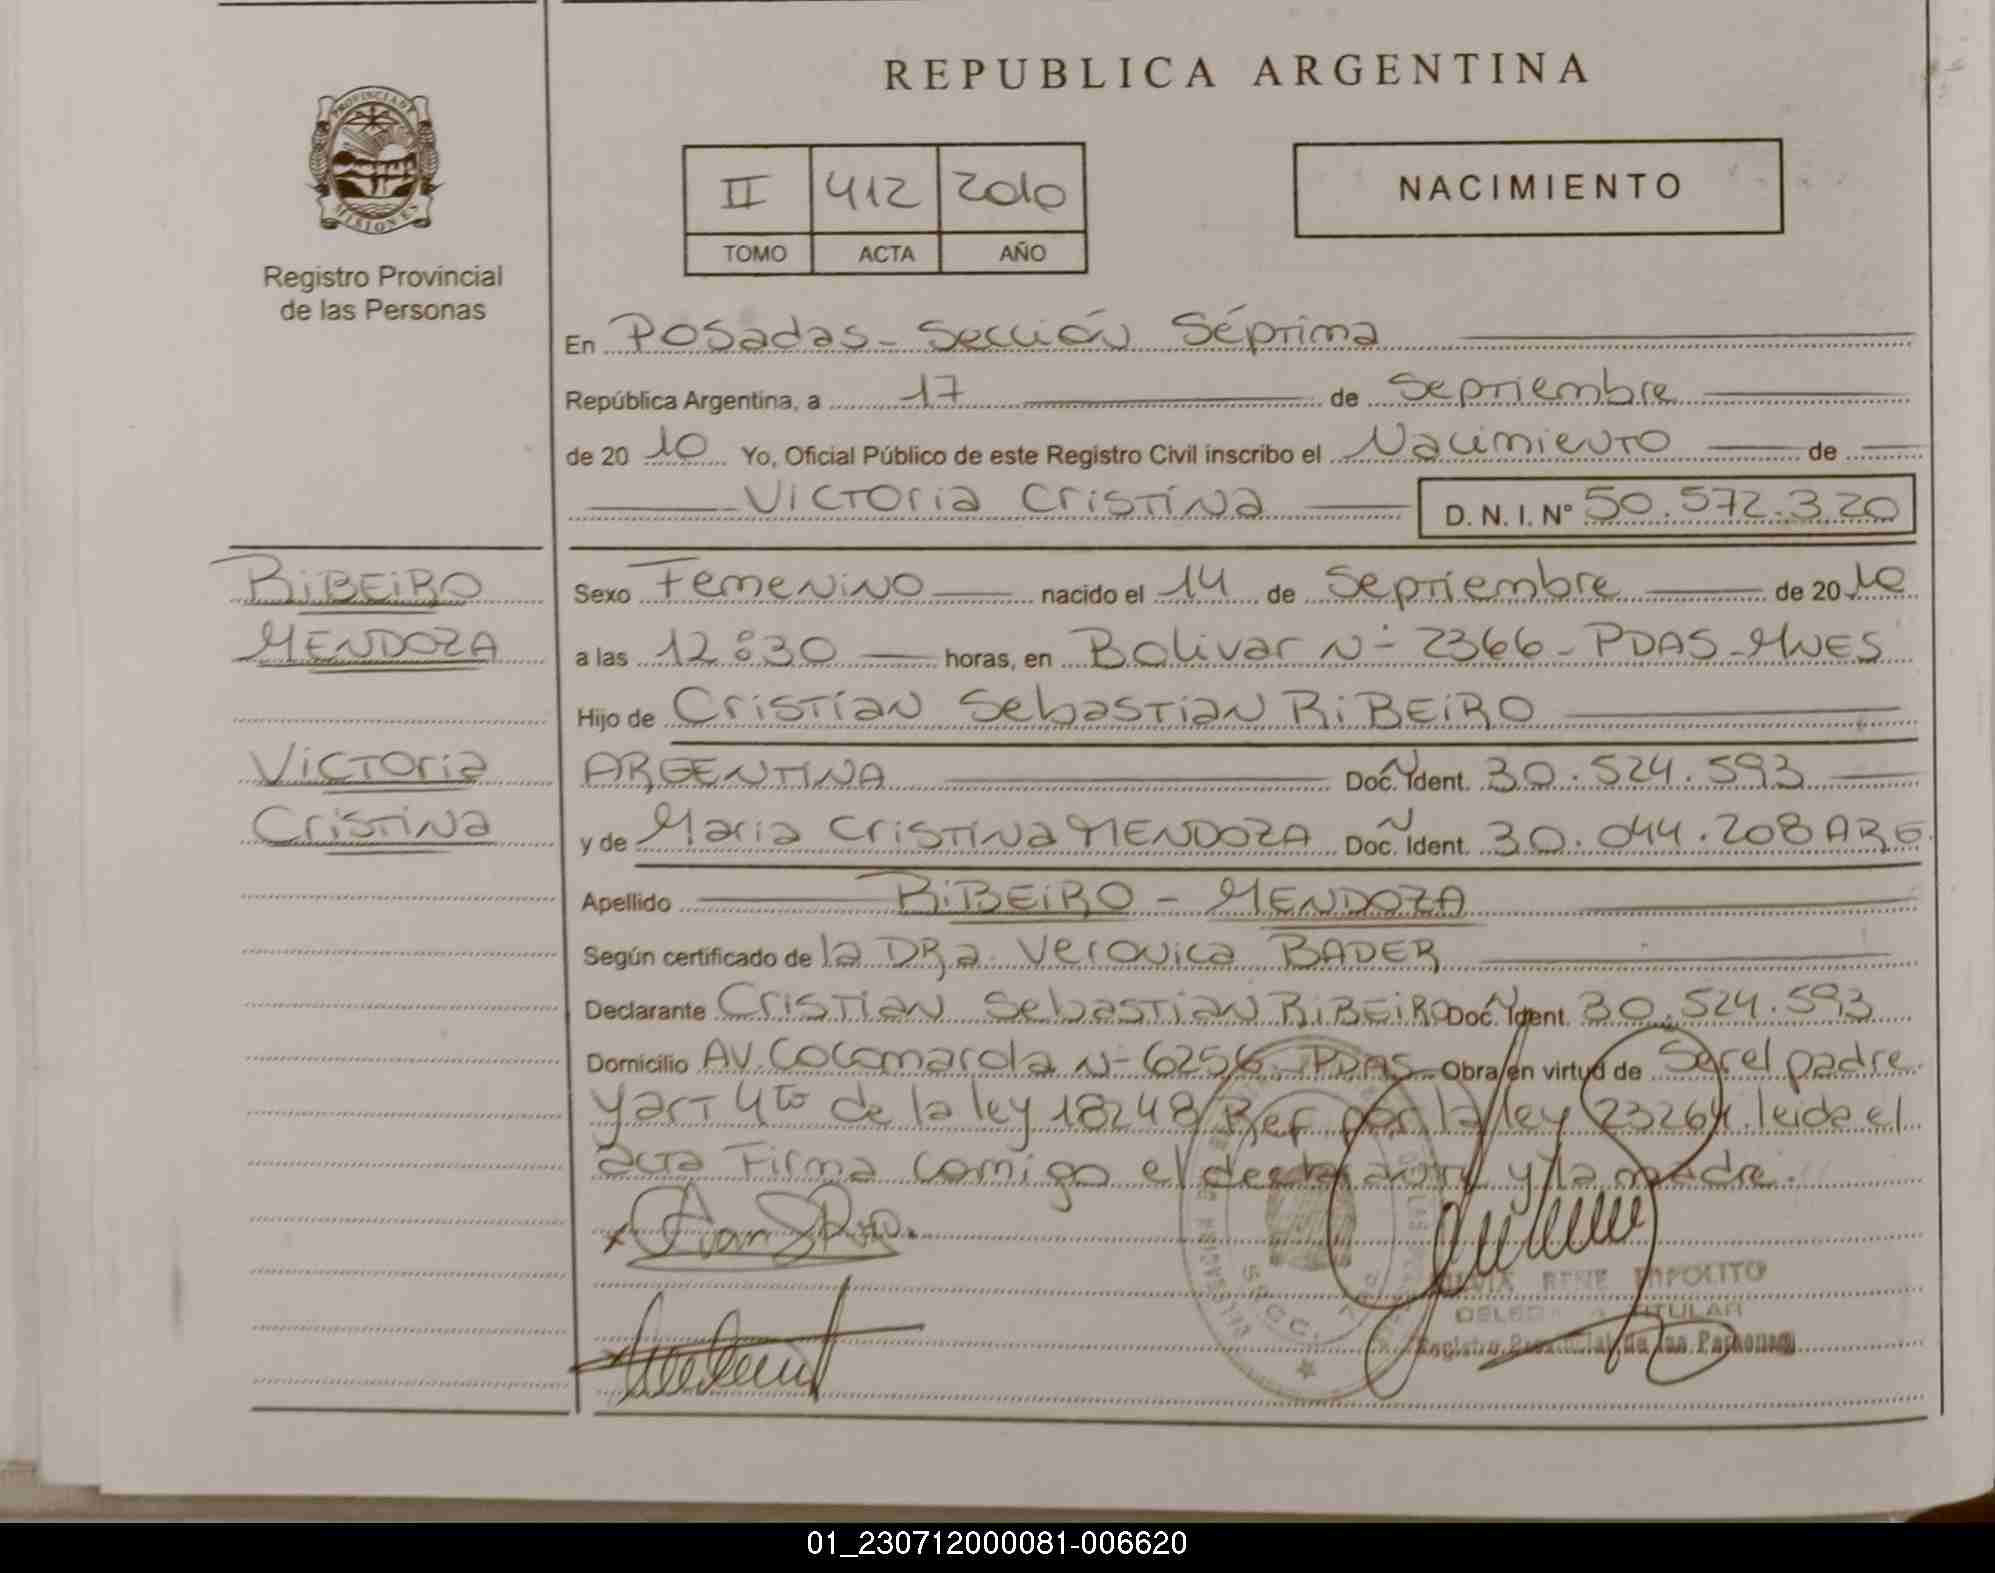 REPUBLICA ARGENTINA
PROVINCIA DE
MISIONES
Registro Provincial
de las Personas
II 412 2010
TOMO ACTA AÑO
NACIMIENTO
En Posadas - Sección Séptima
República Argentina, a 17 de Septiembre
de 2010 Yo, Oficial Público de este Registro Civil inscribo el Nacimiento de
Victoria Cristina D. N. I. N° 50.572.320
RIBEIRO
MENDOZA
Victoria
Cristina
Sexo Femenino nacido el 14 de Septiembre de 2010
a las 12:30 horas, en Bolivar N- 2366 - PDAS - MNES
Hijo de Cristian Sebastian RIBEIRO
ARGENTINA Doc. Ident. 30.524.593
y de Maria Cristina MENDOZA Doc. Ident. 30.044.208 ARG
Apellido RIBEIRO - MENDOZA
Según certificado de la DRa. Veronica BADER
Declarante Cristian Sebastian RIBEIRO Doc. Ident. 30.524.593
Domicilio AV. Cocomarola N- 6256 PDAS Obra en virtud de Ser el padre
y art 4to de la ley 18248 Ref por la ley 23264. leida el
acta Firma comigo el declarante y la madre.
RENE HIPOLITO
TITULAR
Registro Provincial de las Personas
01_230712000081-006620